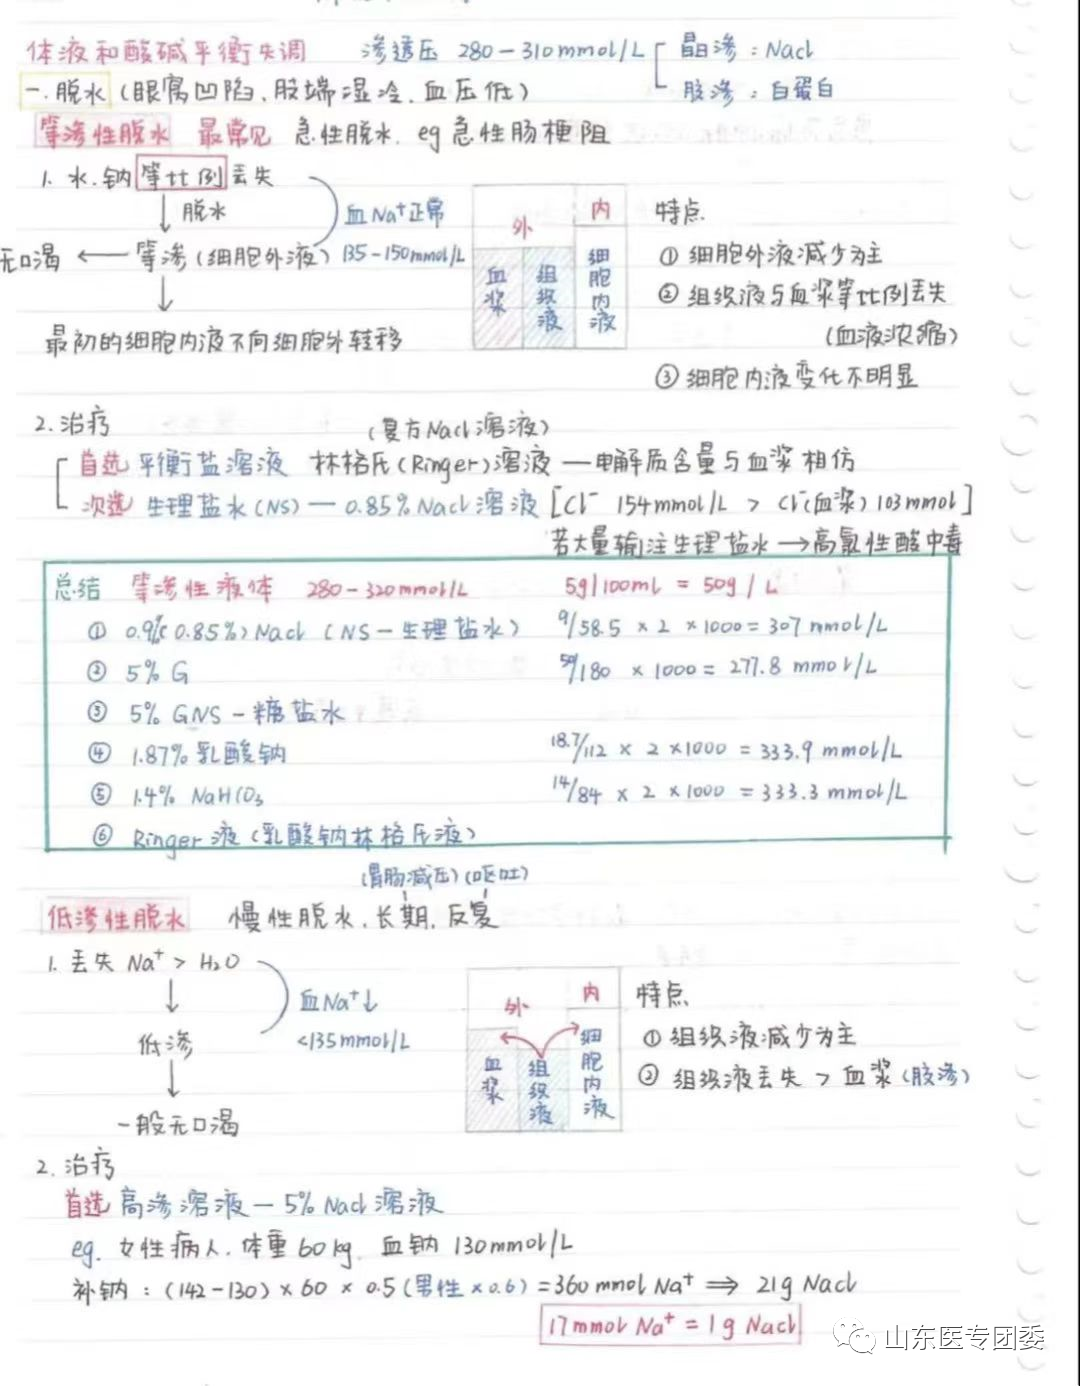 体液和酸碱平衡失调 渗透压 280-310mmol/L 晶渗：Nacl
胶渗：白蛋白
一.脱水(眼窝凹陷、肢端湿冷、血压低)
等渗性脱水 最常见 急性脱水. eg急性肠梗阻
1. 水.钠等比例丢失
脱水
血Na⁺正常
135-150mmol/L
无口渴 ← 等渗(细胞外液)
最初的细胞内液不向细胞外转移
外 内
血浆 组织液 细胞内液
特点
① 细胞外液减少为主
② 组织液与血浆等比例丢失
(血液浓缩)
③ 细胞内液变化不明显
2.治疗
(复方Nacl溶液)
首选 平衡盐溶液 林格氏(Ringer)溶液 — 电解质含量与血浆相仿
次选 生理盐水(NS) — 0.85%Nacl溶液 [Cl⁻ 154mmol/L > Cl⁻(血浆) 103mmol]
若大量输注生理盐水→高氯性酸中毒
总结 等渗性液体 280-320mmol/L 5g/100ml = 50g/L
① 0.9%(0.85%)Nacl (NS-生理盐水) 9/58.5 × 2 × 1000 = 307 mmol/L
② 5% G 50/180 × 1000 = 277.8 mmol/L
③ 5% GNS - 糖盐水
④ 1.87%乳酸钠 18.7/112 × 2 × 1000 = 333.9 mmol/L
⑤ 1.4% NaHCO₃ 14/84 × 2 × 1000 = 333.3 mmol/L
⑥ Ringer液(乳酸钠林格氏液)
(胃肠减压)(呕吐)
低渗性脱水 慢性脱水.长期.反复
1. 丢失 Na⁺ > H₂O
血Na⁺↓
<135mmol/L
低渗
一般无口渴
外 内
血浆 组织液 细胞内液
特点
① 组织液减少为主
② 组织液丢失 > 血浆(胶渗)
2.治疗
首选 高渗溶液 — 5% Nacl溶液
eg. 女性病人.体重60kg. 血钠 130mmol/L
补钠：(142-130) × 60 × 0.5 (男性 × 0.6) = 360 mmol Na⁺ ⇒ 21g Nacl
17mmol Na⁺ = 1g Nacl
山东医专团委